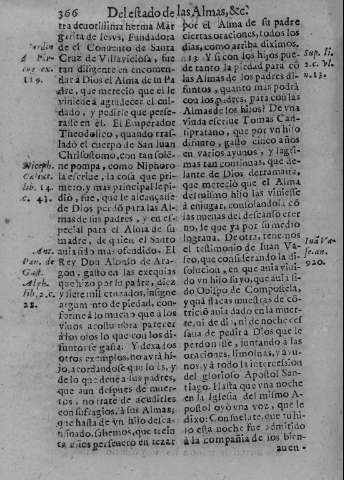 366 Del estado de las Almas, &c.
tra deuotissima herma Mar
garita de Iesvs, Fundadora
de el Conuento de Santa
Cruz de Villaviciosa, fue
tan diligente en encomen-
dar à Dios el Alma de su Pa
dre, que mereciò que el le
viniesse à agradecer el cui-
dado, y pedirle que perse-
rasse en èl. El Emperador
Theodosico, quando tras-
ladò el cuerpo de San Iuan
Chrisostomo, con tan solẽ-
ne pompa, como Niphoro
la escriue, la cosa que pri-
mero, y mas principal le pi-
diò, fue, que le alcançasse
de Dios perdõ para las Al-
mas de sus padres, y en es-
pecial para el Alma de su
madre, de quien el Santo
auia sido mas ofendido. El
Rey Don Alonso de Ara-
gon, gastò en las exequias
que hizo por su padre, diez
y siete mil cruzados, insigne
argumento de piedad, con-
forme à lo mucho que à los
viuos acostumbra parecer
años ojos lo que con los di-
funtos se gasta. Y dexa los
otros exemplos, no avrà hi-
jo, acordandose que lo es, y
de lo que deue à sus padres,
que aun despues de muer-
tos, no trate de acudirles
con sufragios, à sus Almas;
que hasta de vn hijo desca-
sinado, sabemos, que trein-
ta años perseuerò en rezar
Iardin
à Por
tug. ex.
119.
Niceph.
Calixt.
lib. 14.
c. 43.
Ant.
Pan. de
Gest.
Alph.
lib. 2. c.
22.
por el Alma de su padre
ciertas oraciones, todos los
dias, como arriba diximos.
13 Y si con los hijos pue-
de tanto la piedad para cõ
las Almas de los padres di-
funtos, quanto mas podrà
con los padres, para con las
Almas de los hijos? De vna
viuda escriue Tomas Can-
tipratano, que por vn hijo
difunto, gastò cinco años
en varios ayunos, y lagri-
mas tan continuas, que de-
lante de Dios derramaua,
que mereciò que el Alma
del mismo hijo las viniesse
à enjugar, consolandola cõ
las nueuas del descanso eter
no, de que ya por su medio
lograua. De otra, tenemos
el testimonio de Iuan Va-
seo, que considerando la di-
solucion, en que auia viui-
do vn hijo suyo, que auia si-
do Obispo de Compostela,
y quã flacas muestras de cõ-
tricion auia dado en la muer-
te, ni de dia, ni de noche ces
saua de pedir à Dios que le
perdonasse, juntando à las
oraciones, limosnas, y ayu-
nos, y à todo la intercession
del glorioso Apostol San-
tiago. Hasta que vna noche
en la Iglesia del mismo A-
postol oyò vna voz, que le
dixo: Consuelate, que tu hi-
jo esta noche fue admitido
à la compañia de los bien-
auen-
Sup. li.
2. c. vl.
n. 13.
Iuã Va-
se. an.
920.